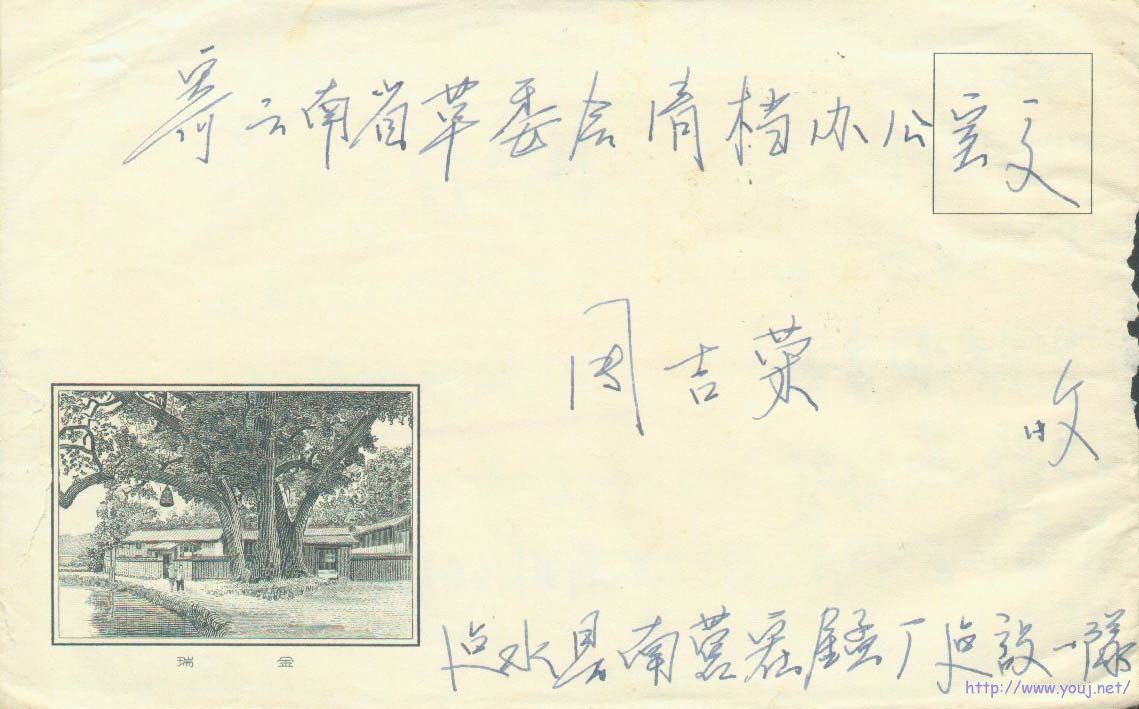 寄云南省革委会清档办公室交
周吉荣 收
瑞金
建水县南营寨 厂建设一隊
http://www.youj.net/